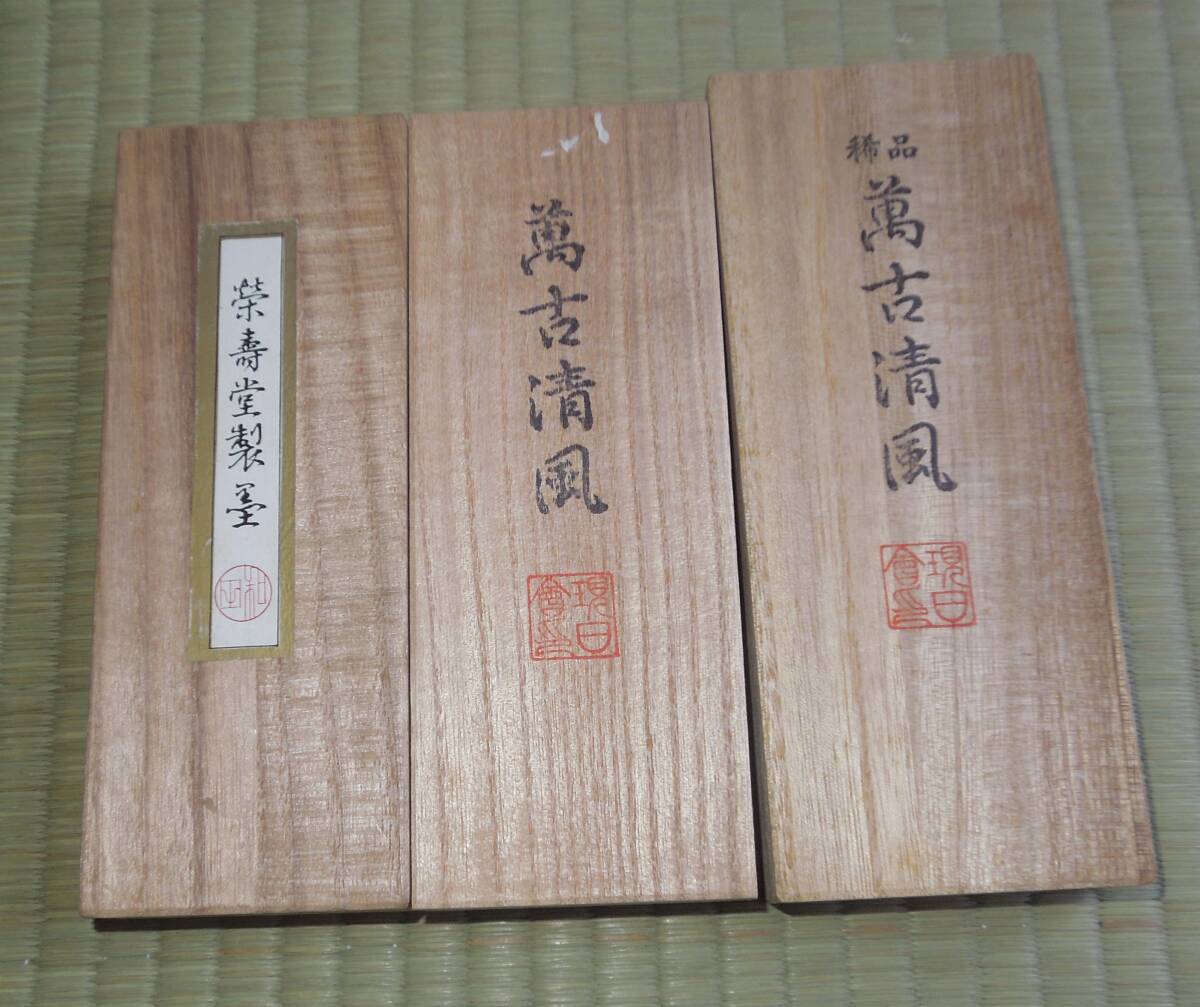 榮壽堂製墨
萬古清風
現日會印
稀品
萬古清風
現日會印